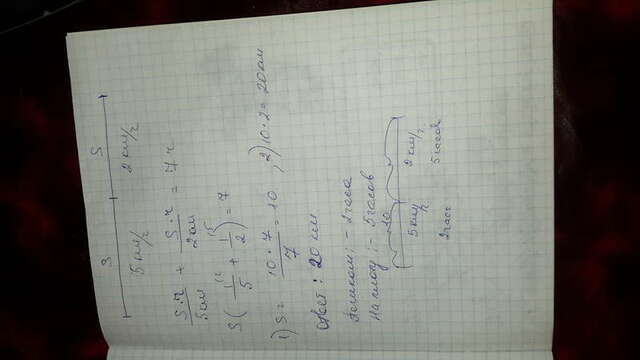 S S
5 км/ч 2 км/ч
S·ч/5км + S·ч/2км = 7ч
S(1/5 + 1/2) = 7
1) S = 10·7/7 = 10, 2) 10·2 = 20км
Ответ: 20 км
- 2часа
На плоту: - 5часов
10
5 км/ч 2 км/ч
2часа 5часов